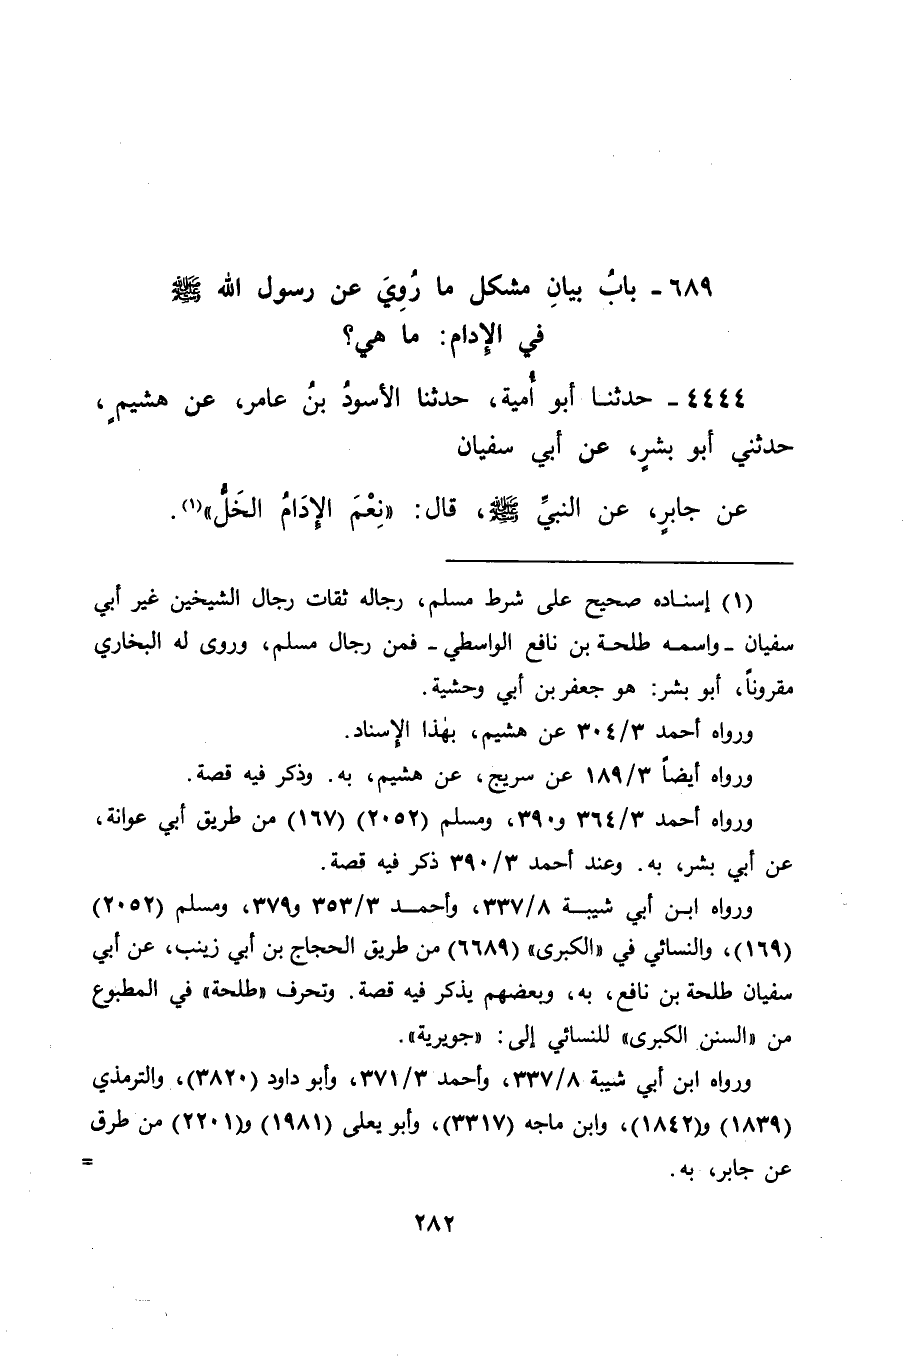 ٦٨٩ـ بابُ بيانِ مشكل ما رُوِيَ عن رسول الله ﷺ
في الإِدام: ما هي؟
٤٤٤٤ـ حدثنا أبو أُمية، حدثنا الأسودُ بنُ عامر، عن هشيمٍ،
حدثني أبو بشرٍ، عن أبي سفيان
عن جابرٍ، عن النبيِّ ﷺ، قال: «نِعْمَ الإِدَامُ الخَلُّ»(١).
(١) إسناده صحيح على شرط مسلم، رجاله ثقات رجال الشيخين غير أبي
سفيان ـ واسمه طلحة بن نافع الواسطي ـ فمن رجال مسلم، وروى له البخاري
مقروناً، أبو بشر: هو جعفر بن أبي وحشية.
ورواه أحمد ٣٠٤/٣ عن هشيم، بهٰذا الإِسناد.
ورواه أيضاً ١٨٩/٣ عن سريج، عن هشيم، به. وذكر فيه قصة.
ورواه أحمد ٣٦٤/٣ و٣٩٠، ومسلم (٢٠٥٢) (١٦٧) من طريق أبي عوانة،
عن أبي بشر، به. وعند أحمد ٣٩٠/٣ ذكر فيه قصة.
ورواه ابن أبي شيبة ٣٣٧/٨، وأحمد ٣٥٣/٣ و٣٧٩، ومسلم (٢٠٥٢)
(١٦٩)، والنسائي في «الكبرى» (٦٦٨٩) من طريق الحجاج بن أبي زينب، عن أبي
سفيان طلحة بن نافع، به، وبعضهم يذكر فيه قصة. وتحرف «طلحة» في المطبوع
من «السنن الكبرى» للنسائي إلى: «جويرية».
ورواه ابن أبي شيبة ٣٣٧/٨، وأحمد ٣٧١/٣، وأبو داود (٣٨٢٠)، والترمذي
(١٨٣٩) و(١٨٤٢)، وابن ماجه (٣٣١٧)، وأبو يعلى (١٩٨١) و(٢٢٠١) من طرق
عن جابر، به. =
٢٨٢